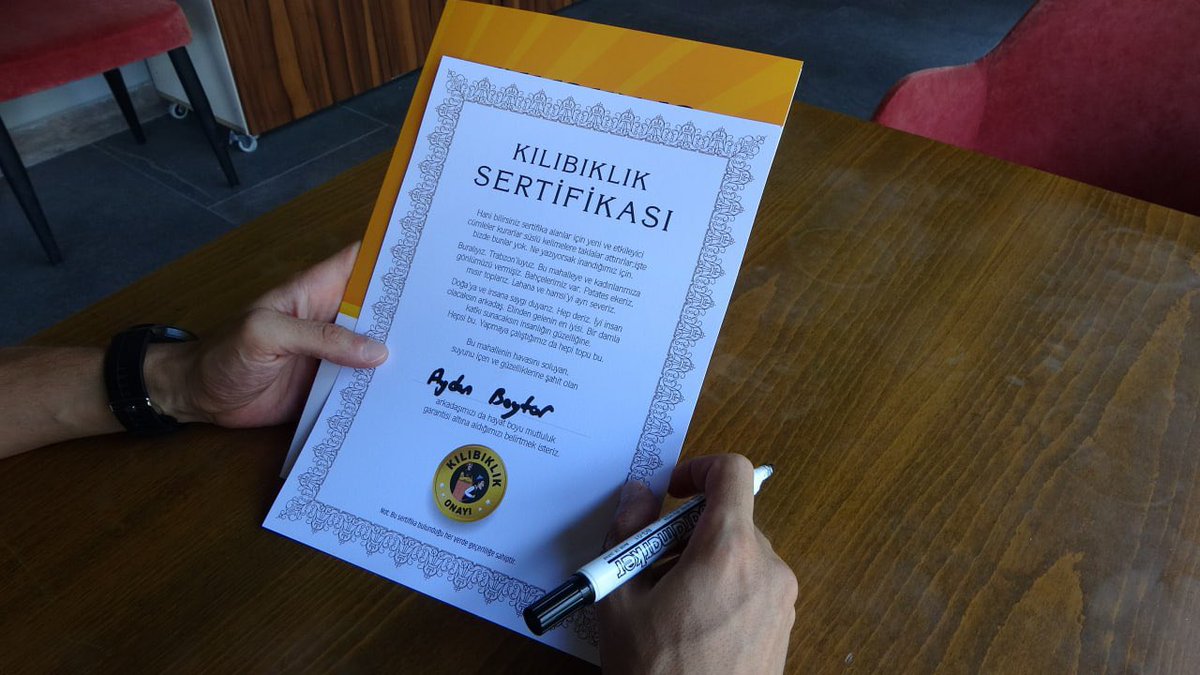 KILIBIKLIK
SERTİFİKASI
Hani bilirsiniz sertifika alanlar için yeni ve etkileyici
cümleler kurarlar süslü kelimelere taklalar attırırlar;işte
bizde bunlar yok. Ne yazıyorsak inandığımız için.
Buralıyız. Trabzon'luyuz. Bu mahalleye ve kadınlarımıza
gönlümüzü vermişiz. Bahçelerimiz var. Patates ekeriz,
mısır toplarız. Lahana ve hamsi'yi ayrı severiz.
Doğa'ya ve insana saygı duyarız. Hep deriz. İyi insan
olacaksın arkadaş. Elinden gelenin en iyisi. Bir damla
katkı sunacaksın insanlığın güzelliğine.
Hepsi bu. Yapmaya çalıştığımız da hepi topu bu.
Bu mahallenin havasını soluyan,
suyunu içen ve güzelliklerine şahit olan
Aydın
arkadaşımızı da hayat boyu mutluluk
garantisi altına aldığımızı belirtmek isteriz.
KILIBIKLIK
ONAYI
Not: Bu sertifika bulunduğu her yerde geçerliliğe sahiptir.